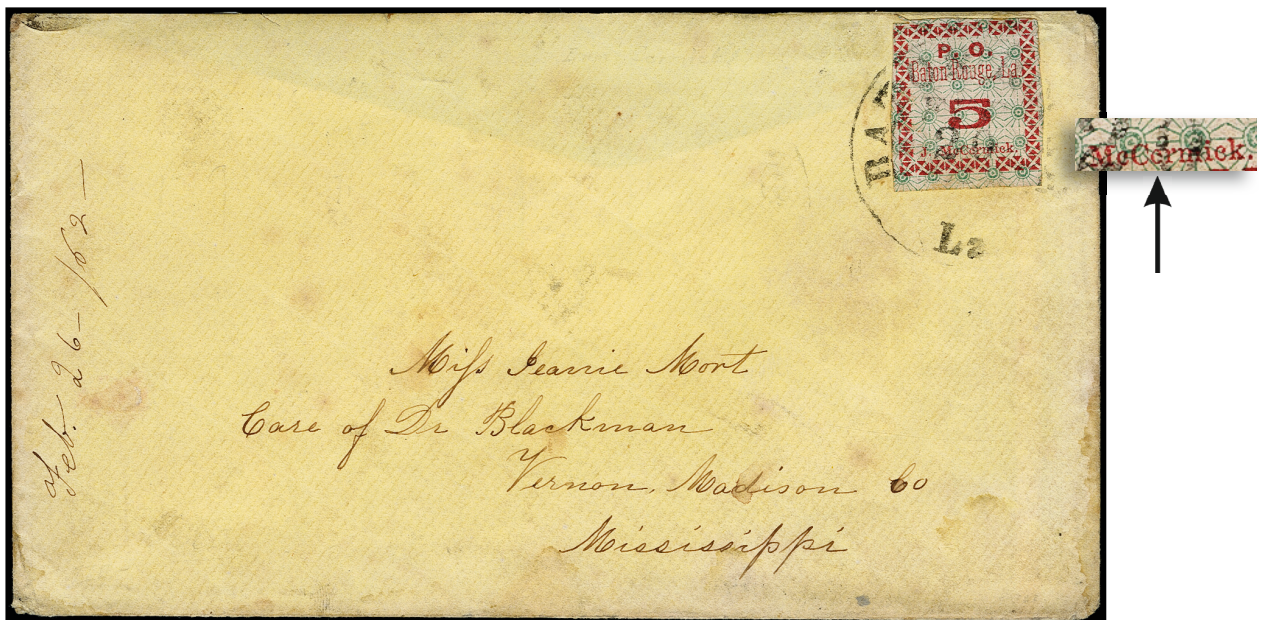 P. O.
Baton Rouge, La.
5
J. McCcrmick.
BAT
La
McCcrmick.
Feb. 26 - /62 -
Miss Jeannie Mort
Care of Dr Blackman
Vernon, Madison Co
Mississippi